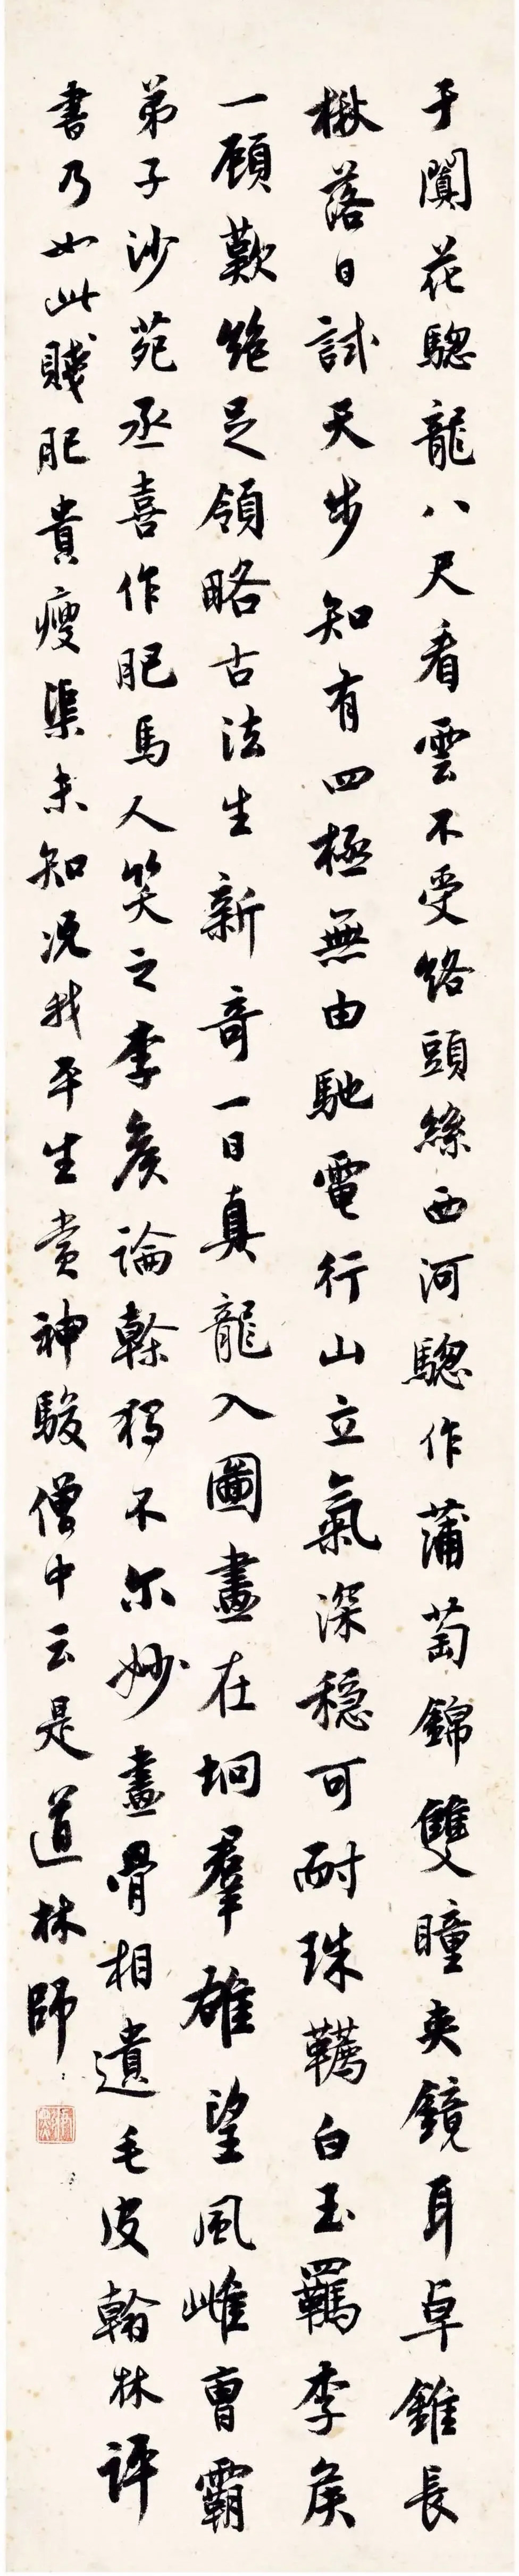 于闐花驄龍八尺看雲不受絡頭絲西河驄作蒲萄錦雙瞳夾鏡耳卓錐長
楸落日試天步知有四極無由馳電行山立氣深穩可耐珠韉白玉羈李侯
一顧歎絕足領略古法生新奇一日真龍入圖畫在坰群雄望風雌曹霸
弟子沙苑丞喜作肥馬人笑之李侯論幹獨不爾妙畫骨相遺毛皮翰林評
書乃如此賤肥貴瘦渠未知況我平生賞神駿僧中云是道林師